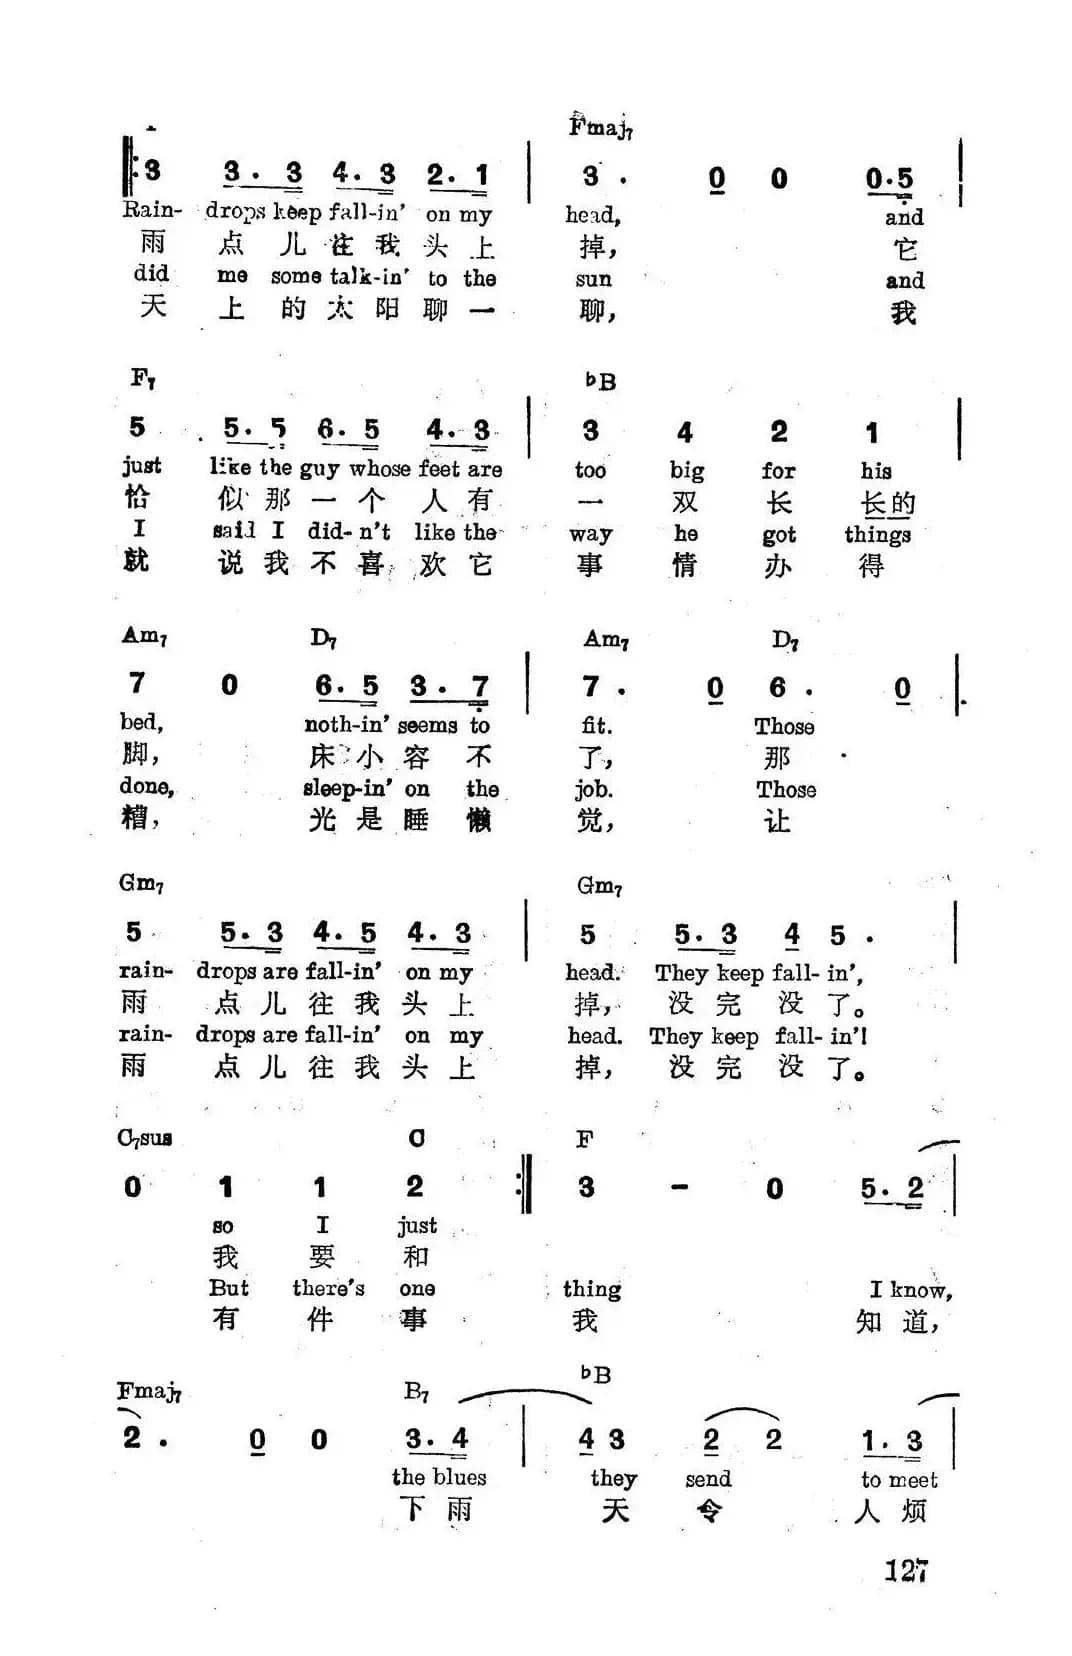 Fmaj7
3 3. 3 4. 3 2. 1 3. 0 0 0. 5
Rain- drops keep fall-in' on my head, and
雨 点 儿 往 我 头 上 掉， 它
did me some talk-in' to the sun and
天 上 的 太 阳 聊 一 聊， 我
F7 ♭B
5 5. 5 6. 5 4. 3 3 4 2 1
just like the guy whose feet are too big for his
恰 似 那 一 个 人 有 一 双 长 长的
I said I did-n't like the way he got things
就 说 我 不 喜 欢 它 事 情 办 得
Am7 D7 Am7 D7
7 0 6. 5 3. 7 7. 0 6. 0
bed, noth-in' seems to fit. Those
脚， 床 小 容 不 了， 那
done, sleep-in' on the job. Those
糟， 光 是 睡 懒 觉， 让
Gm7 Gm7
5 5. 3 4. 5 4. 3 5 5. 3 4 5.
rain- drops are fall-in' on my head. They keep fall-in',
雨 点 儿 往 我 头 上 掉， 没 完 没 了。
rain- drops are fall-in' on my head. They keep fall-in'!
雨 点 儿 往 我 头 上 掉， 没 完 没 了。
C7sus C F
0 1 1 2 3 - 0 5. 2
so I just
我 要 和
But there's one thing I know,
有 件 事 我 知 道，
Fmaj7 B7 ♭B
2. 0 0 3. 4 4 3 2 2 1. 3
the blues they send to meet
下 雨 天 令 人 烦
127